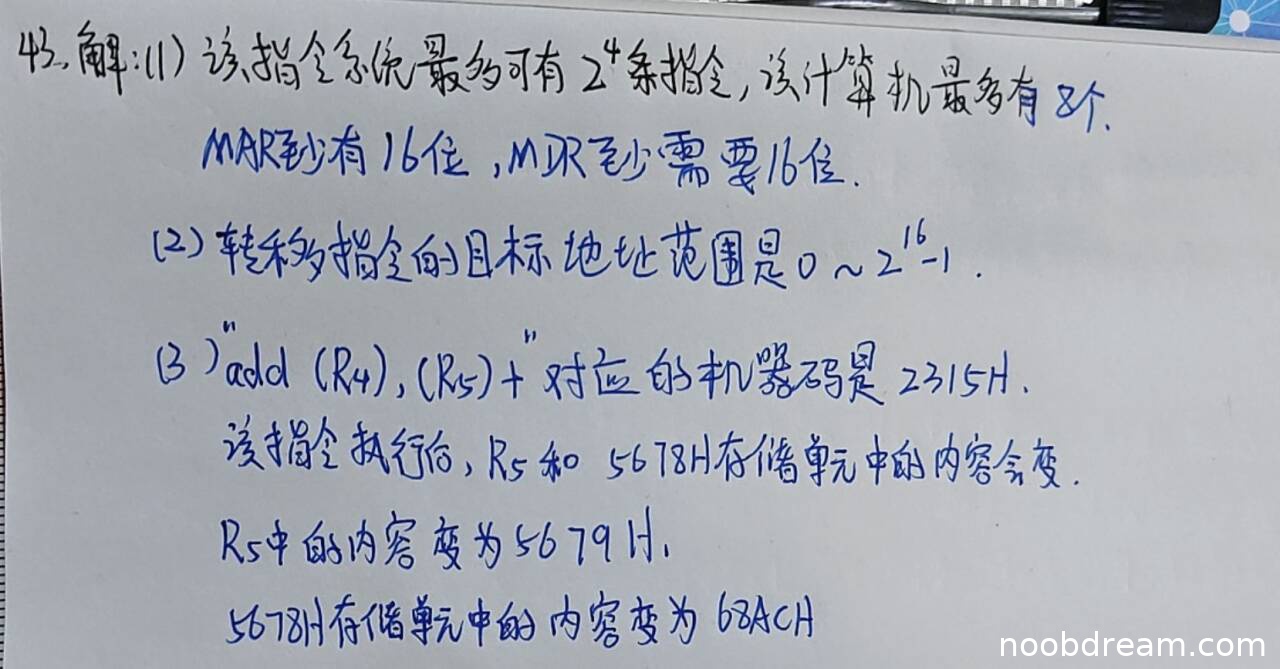 43、解:(1) 该指令系统最多可有2⁴条指令,该计算机最多有8个.
MAR至少有16位,MDR至少需要16位.
(2) 转移指令的目标地址范围是0~2¹⁶-1.
(3) "add (R4),(R5)+"对应的机器码是2315H.
该指令执行后,R5和5678H存储单元中的内容会变.
R5中的内容变为5679H.
5678H存储单元中的内容变为68ACH
noobdream.com